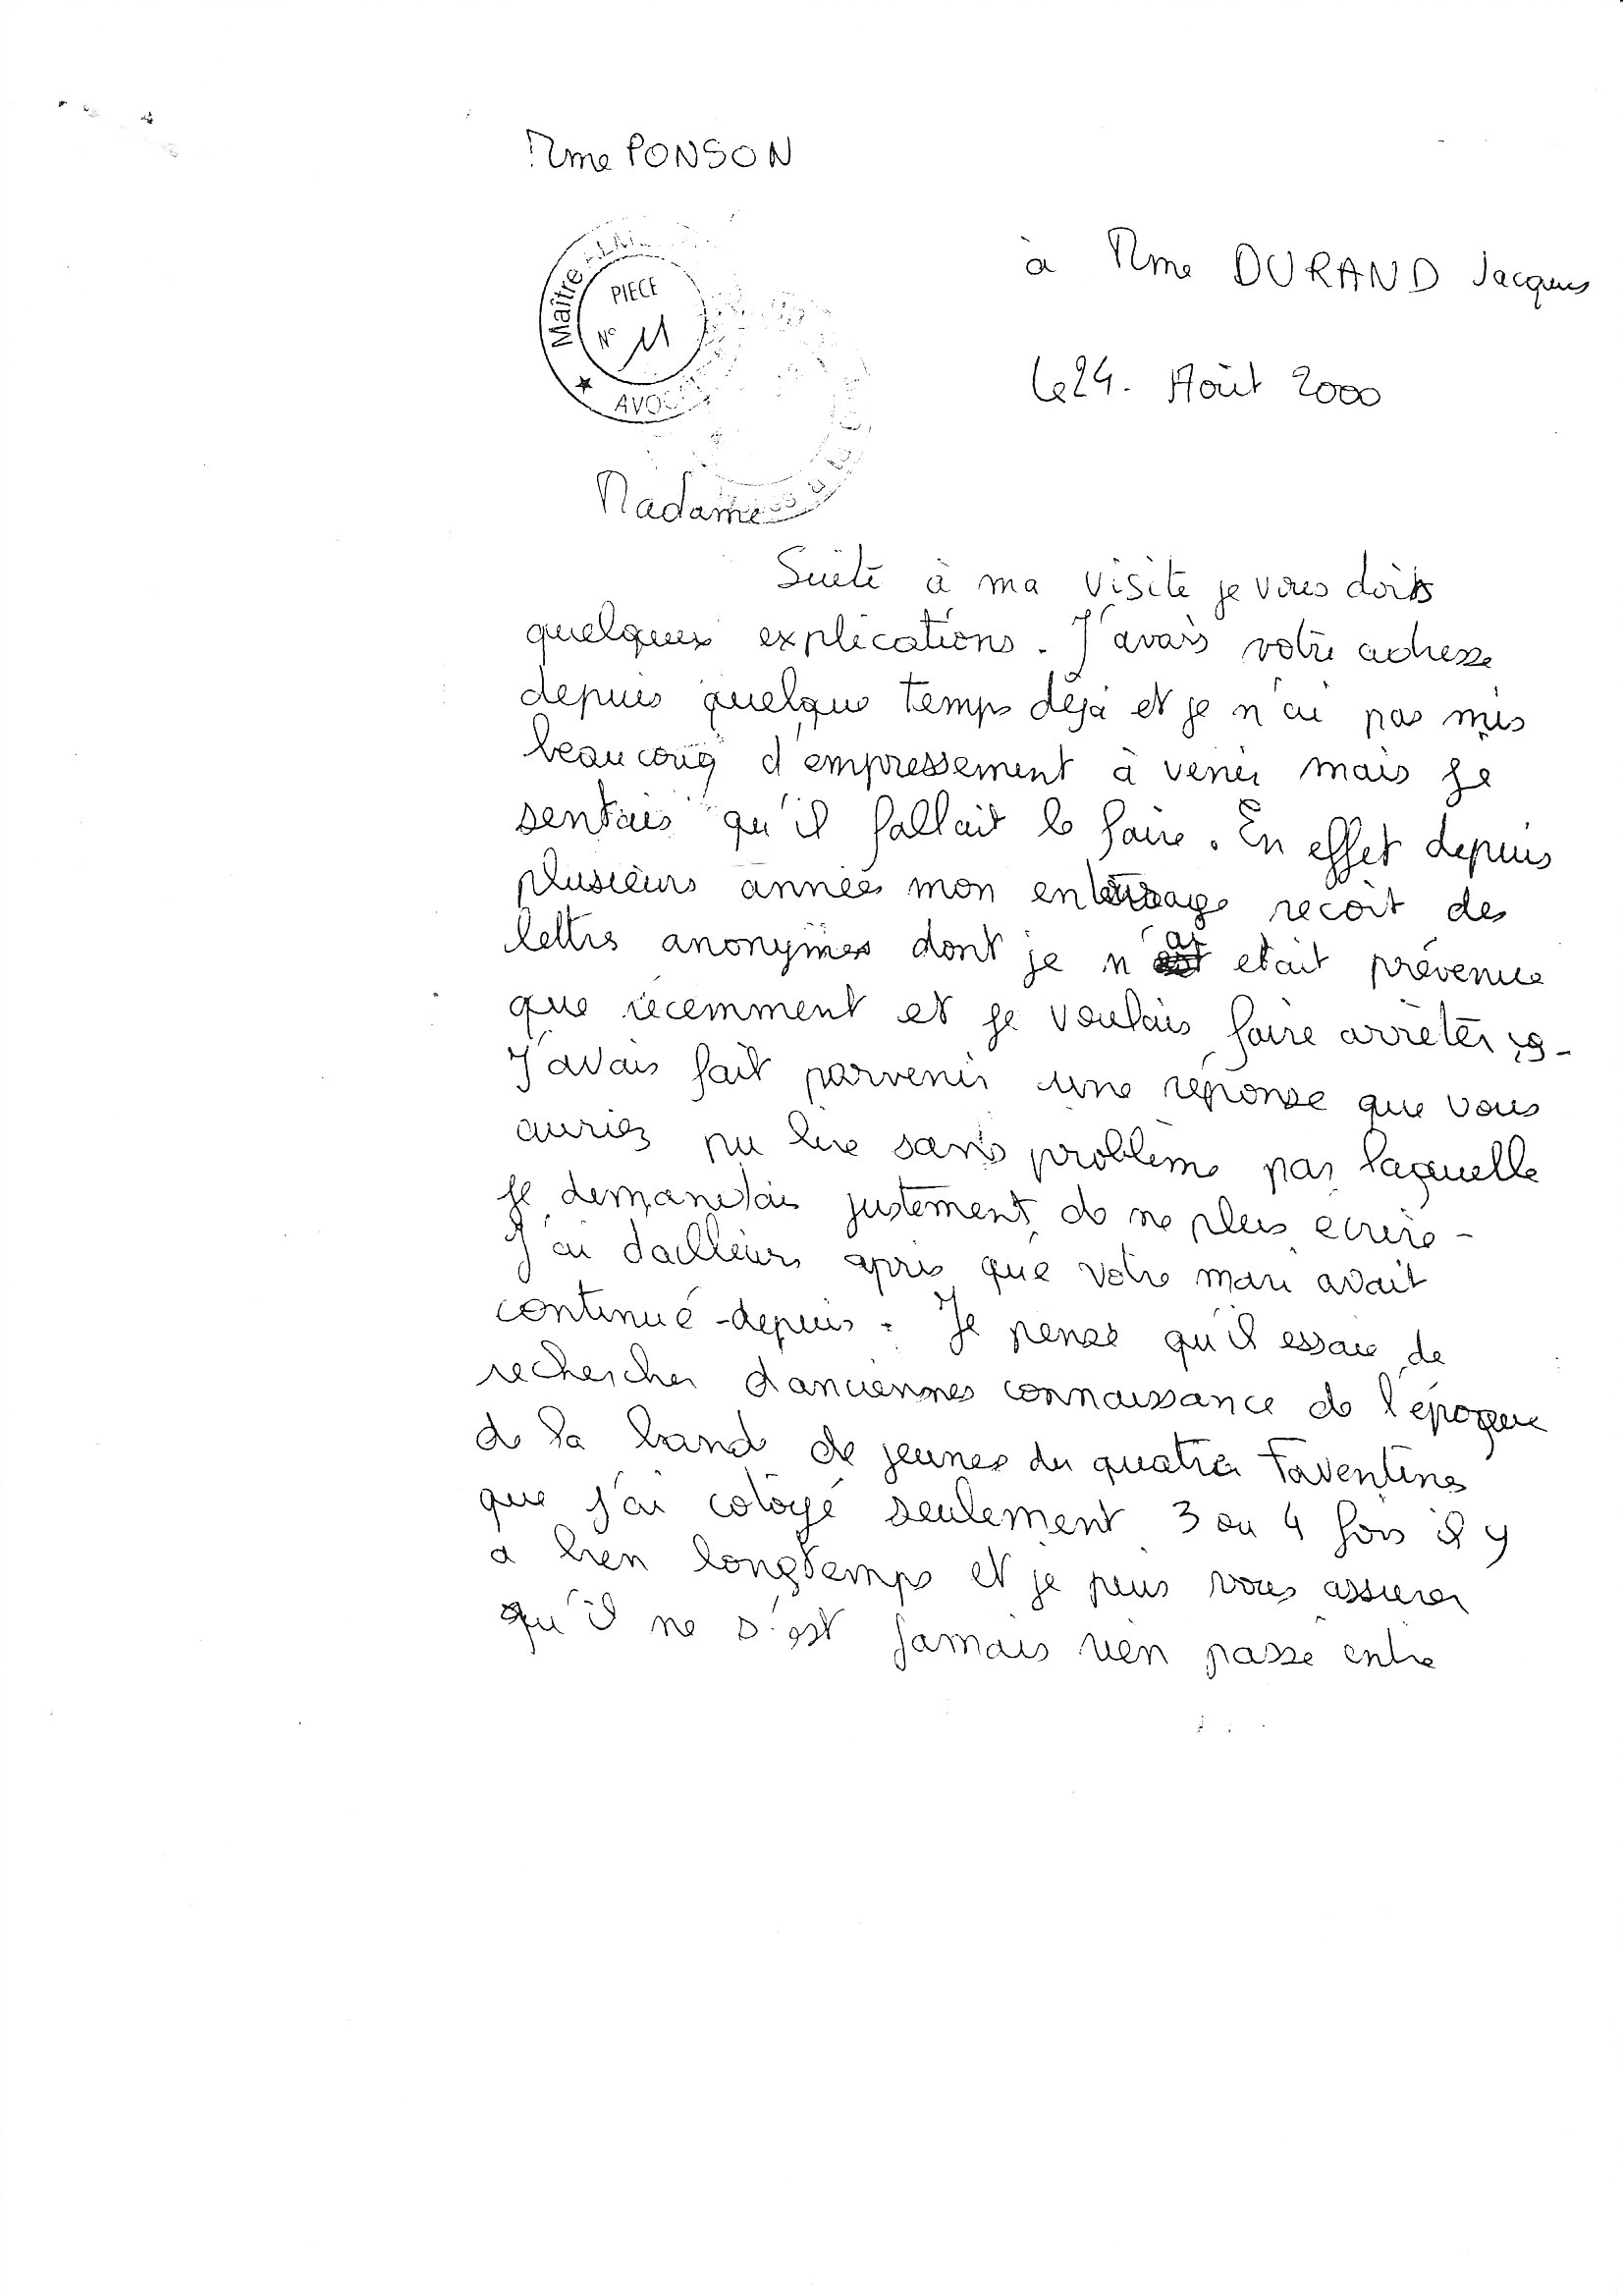 Mme PONSON
à Mme DURAND Jacques
Maître
PIECE
N° 11
AVOC
le 24. Août 2000
Madame
Suite à ma visite je vous dois
quelques explications. J'avais votre adresse
depuis quelque temps déjà et je n'ai pas mis
beaucoup d'empressement à venir mais je
sentais qu'il fallait le faire. En effet depuis
plusieurs années mon entourage recoit des
lettres anonymes dont je n'ai etait prévenue
que récemment et je voulais faire arrêter ça-
J'avais fait parvenir une réponse que vous
auriez pu lire sans problème par laquelle
je demandais justement de ne plus écrire-
J'ai dailleurs apris que votre mari avait
continué depuis. Je pense qu'il essaie de
rechercher d'anciennes connaissance de l'époque
de la bande de jeunes du quatier Faventines
que j'ai cotoyé seulement 3 ou 4 fois il y
a bien longtemps et je puis vous assurer
qu'il ne s'est jamais rien passé entre